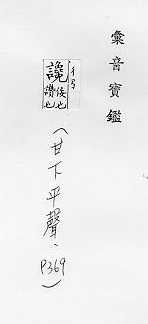 彙音寶鑑
讒
佞也
譖也
(甘下平聲、P369)